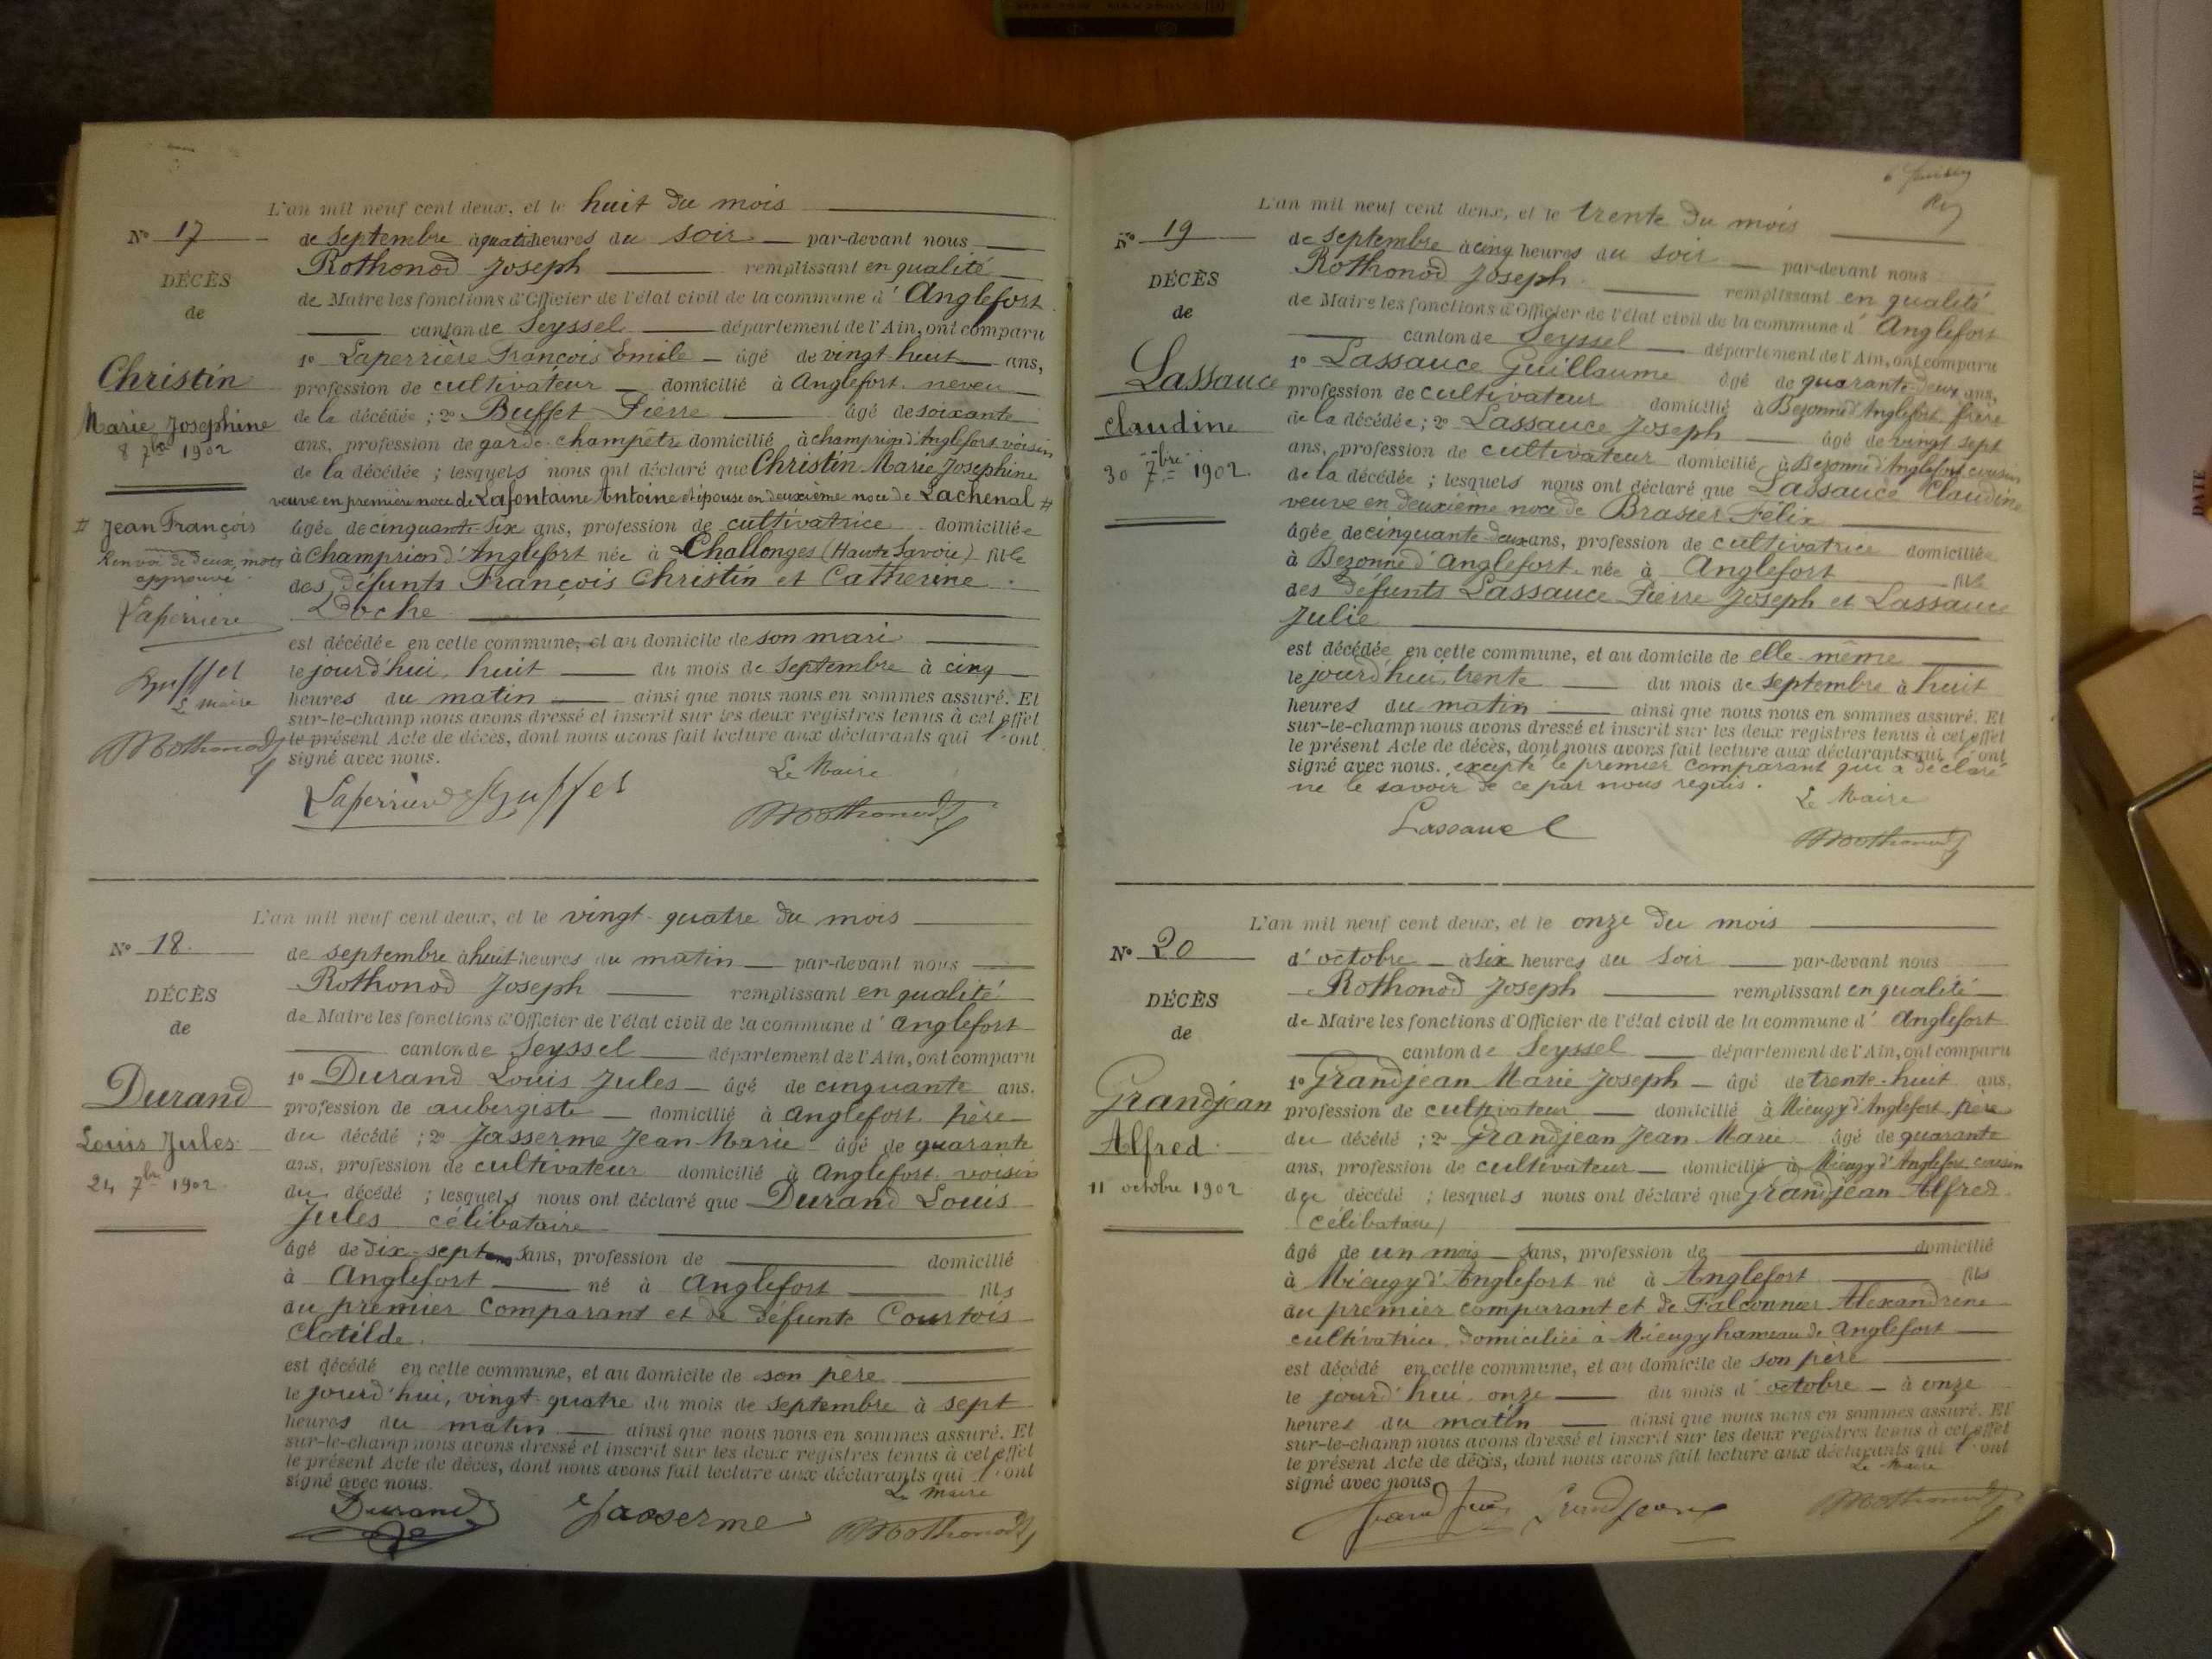 L'an mil neuf cent deux, et le huit du mois
N° 17
de septembre à quatre heures du soir par-devant nous
Rothonod Joseph remplissant en qualité
DÉCÈS
de
de Maire les fonctions d'Officier de l'état civil de la commune d' Anglefort
canton de Seyssel département de l'Ain, ont comparu
1° Laperrière François Emile âgé de vingt-huit ans,
Christin
profession de cultivateur domicilié à Anglefort neveu
de la décédée ; 2° Buffet Pierre âgé de soixante
Marie Josephine
8 7bre 1902
ans, profession de garde-champêtre domicilié à champrion d'Anglefort voisin
de la décédée ; lesquels nous ont déclaré que Christin Marie Josephine
veuve en première noce de Lafontaine Antoine et épouse en deuxième noce de Lachenal #
# Jean François
Renvoi de deux mots
approuvé
Laperrière
Buffet
Le Maire
Rothonod
âgée de cinquante-six ans, profession de cultivatrice domiciliée
à Champrion d'Anglefort née à Challonges (Haute Savoie) fille
des défunts François Christin et Catherine
Doche
est décédée en cette commune, et au domicile de son mari
le jourd'hui, huit du mois de septembre à cinq
heures du matin ainsi que nous nous en sommes assuré. Et
sur-le-champ nous avons dressé et inscrit sur les deux registres tenus à cet effet
le présent Acte de décès, dont nous avons fait lecture aux déclarants qui l'ont
signé avec nous.
Le Maire
Laperrière Buffet
Rothonod
L'an mil neuf cent deux, et le vingt-quatre du mois
N° 18
de septembre à huit heures du matin par-devant nous
Rothonod Joseph remplissant en qualité
DÉCÈS
de
de Maire les fonctions d'Officier de l'état civil de la commune d' Anglefort
canton de Seyssel département de l'Ain, ont comparu
1° Durand Louis Jules âgé de cinquante ans.
Durand
profession de aubergiste domicilié à Anglefort père
du décédé ; 2° Jasserme Jean-Marie âgé de quarante
Louis Jules
24 7bre 1902
ans, profession de cultivateur domicilié à Anglefort voisin
du décédé ; lesquels nous ont déclaré que Durand Louis
Jules célibataire
âgé de dix-sept ans, profession de domicilié
à Anglefort né à Anglefort fils
du premier comparant et de défunte Courtois
Clotilde.
est décédé en cette commune, et au domicile de son père
le jourd'hui, vingt-quatre du mois de septembre à sept
heures du matin ainsi que nous nous en sommes assuré. Et
sur-le-champ nous avons dressé et inscrit sur les deux registres tenus à cet effet
le présent Acte de décès, dont nous avons fait lecture aux déclarants qui l'ont
signé avec nous.
Le Maire
Durand Jasserme Rothonod
L'an mil neuf cent deux, et le trente du mois
N° 19
de septembre à cinq heures du soir par-devant nous
Rothonod Joseph remplissant en qualité
DÉCÈS
de
de Maire les fonctions d'Officier de l'état civil de la commune d' Anglefort
canton de Seyssel département de l'Ain, ont comparu
1° Lassauce Guillaume âgé de quarante-deux ans,
Lassauce
profession de cultivateur domicilié à Bezonne d'Anglefort frère
de la décédée ; 2° Lassauce Joseph âgé de vingt sept
claudine
30 7bre 1902.
ans, profession de cultivateur domicilié à Bezonne d'Anglefort cousin
de la décédée ; lesquels nous ont déclaré que Lassauce Claudine
veuve en deuxième noce de Brasier Félix
âgée de cinquante-deux ans, profession de cultivatrice domiciliée
à Bezonne d'Anglefort née à Anglefort fille
des défunts Lassauce Pierre Joseph et Lassauce
Julie
est décédée en cette commune, et au domicile de elle-même
le jourd'hui, trente du mois de septembre à huit
heures du matin ainsi que nous nous en sommes assuré. Et
sur-le-champ nous avons dressé et inscrit sur les deux registres tenus à cet effet
le présent Acte de décès, dont nous avons fait lecture aux déclarants qui l'ont
signé avec nous. excepté le premier comparant qui a déclaré
ne le savoir de ce par nous requis.
Le Maire
Lassauce
Rothonod
L'an mil neuf cent deux, et le onze du mois
N° 20
d'octobre à six heures du soir par-devant nous
Rothonod Joseph remplissant en qualité
DÉCÈS
de
de Maire les fonctions d'Officier de l'état civil de la commune d' Anglefort
canton de Seyssel département de l'Ain, ont comparu
1° Grandjean Marie Joseph âgé de trente-huit ans,
Grandjean
profession de cultivateur domicilié à Mieugy d'Anglefort père
du décédé ; 2° Grandjean Jean Marie âgé de quarante
Alfred
11 octobre 1902
ans, profession de cultivateur domicilié à Mieugy d'Anglefort cousin
du décédé ; lesquels nous ont déclaré que Grandjean Alfred
(célibataire)
âgé de un mois ans, profession de domicilié
à Mieugy d'Anglefort né à Anglefort fils
du premier comparant et de Falconnier Alexandrine
cultivatrice domiciliée à Mieugy hameau de Anglefort
est décédé en cette commune, et au domicile de son père
le jourd'hui onze du mois d'octobre à onze
heures du matin ainsi que nous nous en sommes assuré. Et
sur-le-champ nous avons dressé et inscrit sur les deux registres tenus à cet effet
le présent Acte de décès, dont nous avons fait lecture aux déclarants qui l'ont
signé avec nous.
Le Maire
Grandjean Grandjean Rothonod
DATE